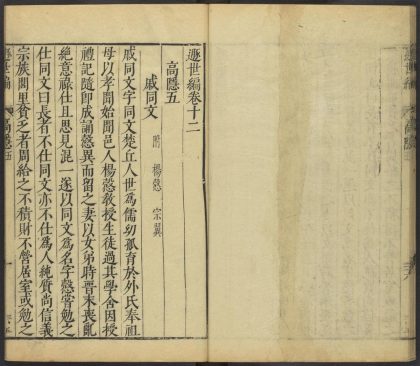 遯世編卷十二
高隱五
戚同文 附 楊慤 宗翼
戚同文字同文楚丘人世為儒幼孤育於外氏奉祖
母以孝聞始聞邑人楊慤教授生徒過其學舍因授
禮記隨即成誦慤異而留之妻以女弟時晉末喪亂
絶意祿仕且思見混一遂以同文為名字慤嘗勉之
仕同文曰長者不仕同文亦不仕為人純質尚信義
宗族閭里貧乏者周給之不積財不營居室或勉之
遯世編
高隱五
一